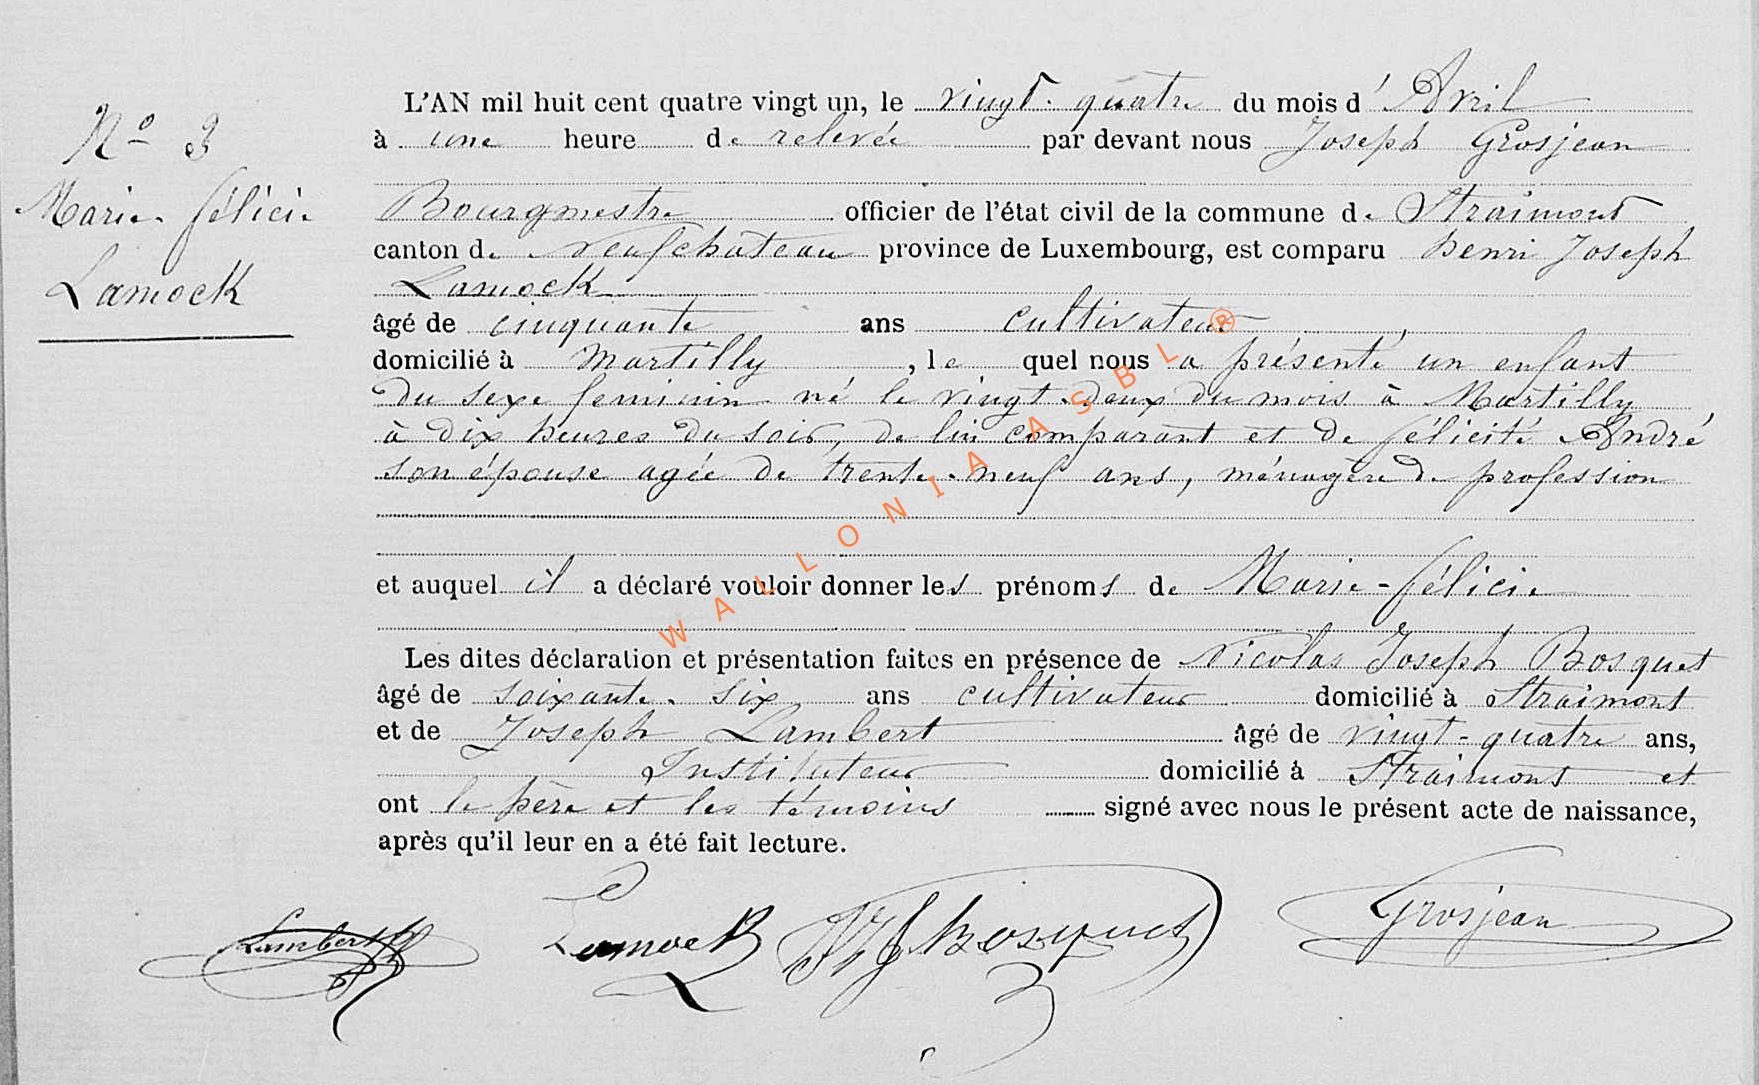 N° 3
Marie-Félicie
Lamock
L'AN mil huit cent quatre vingt un, le vingt-quatre du mois d'Avril
à une heure de relevée par devant nous Joseph Grosjean
Bourgmestre officier de l'état civil de la commune de Straimont
canton de Neufchâteau province de Luxembourg, est comparu Henri Joseph
Lamock
âgé de cinquante ans cultivateur
domicilié à Martilly, le quel nous a présenté un enfant
du sexe feminin né le vingt-deux du mois à Martilly
à dix heures du soir, de lui comparant et de Félicité André
son épouse agée de trente-neuf ans, ménagère de profession
et auquel il a déclaré vouloir donner les prénoms de Marie-Félicie
Les dites déclaration et présentation faites en présence de Nicolas Joseph Bosquet
âgé de soixante-six ans cultivateur domicilié à Straimont
et de Joseph Lambert âgé de vingt-quatre ans,
Instituteur domicilié à Straimont et
ont le père et les témoins signé avec nous le présent acte de naissance,
après qu'il leur en a été fait lecture.
Lambert Lamock NJ Bosquet Grosjean
WALLONIA ASBL ®